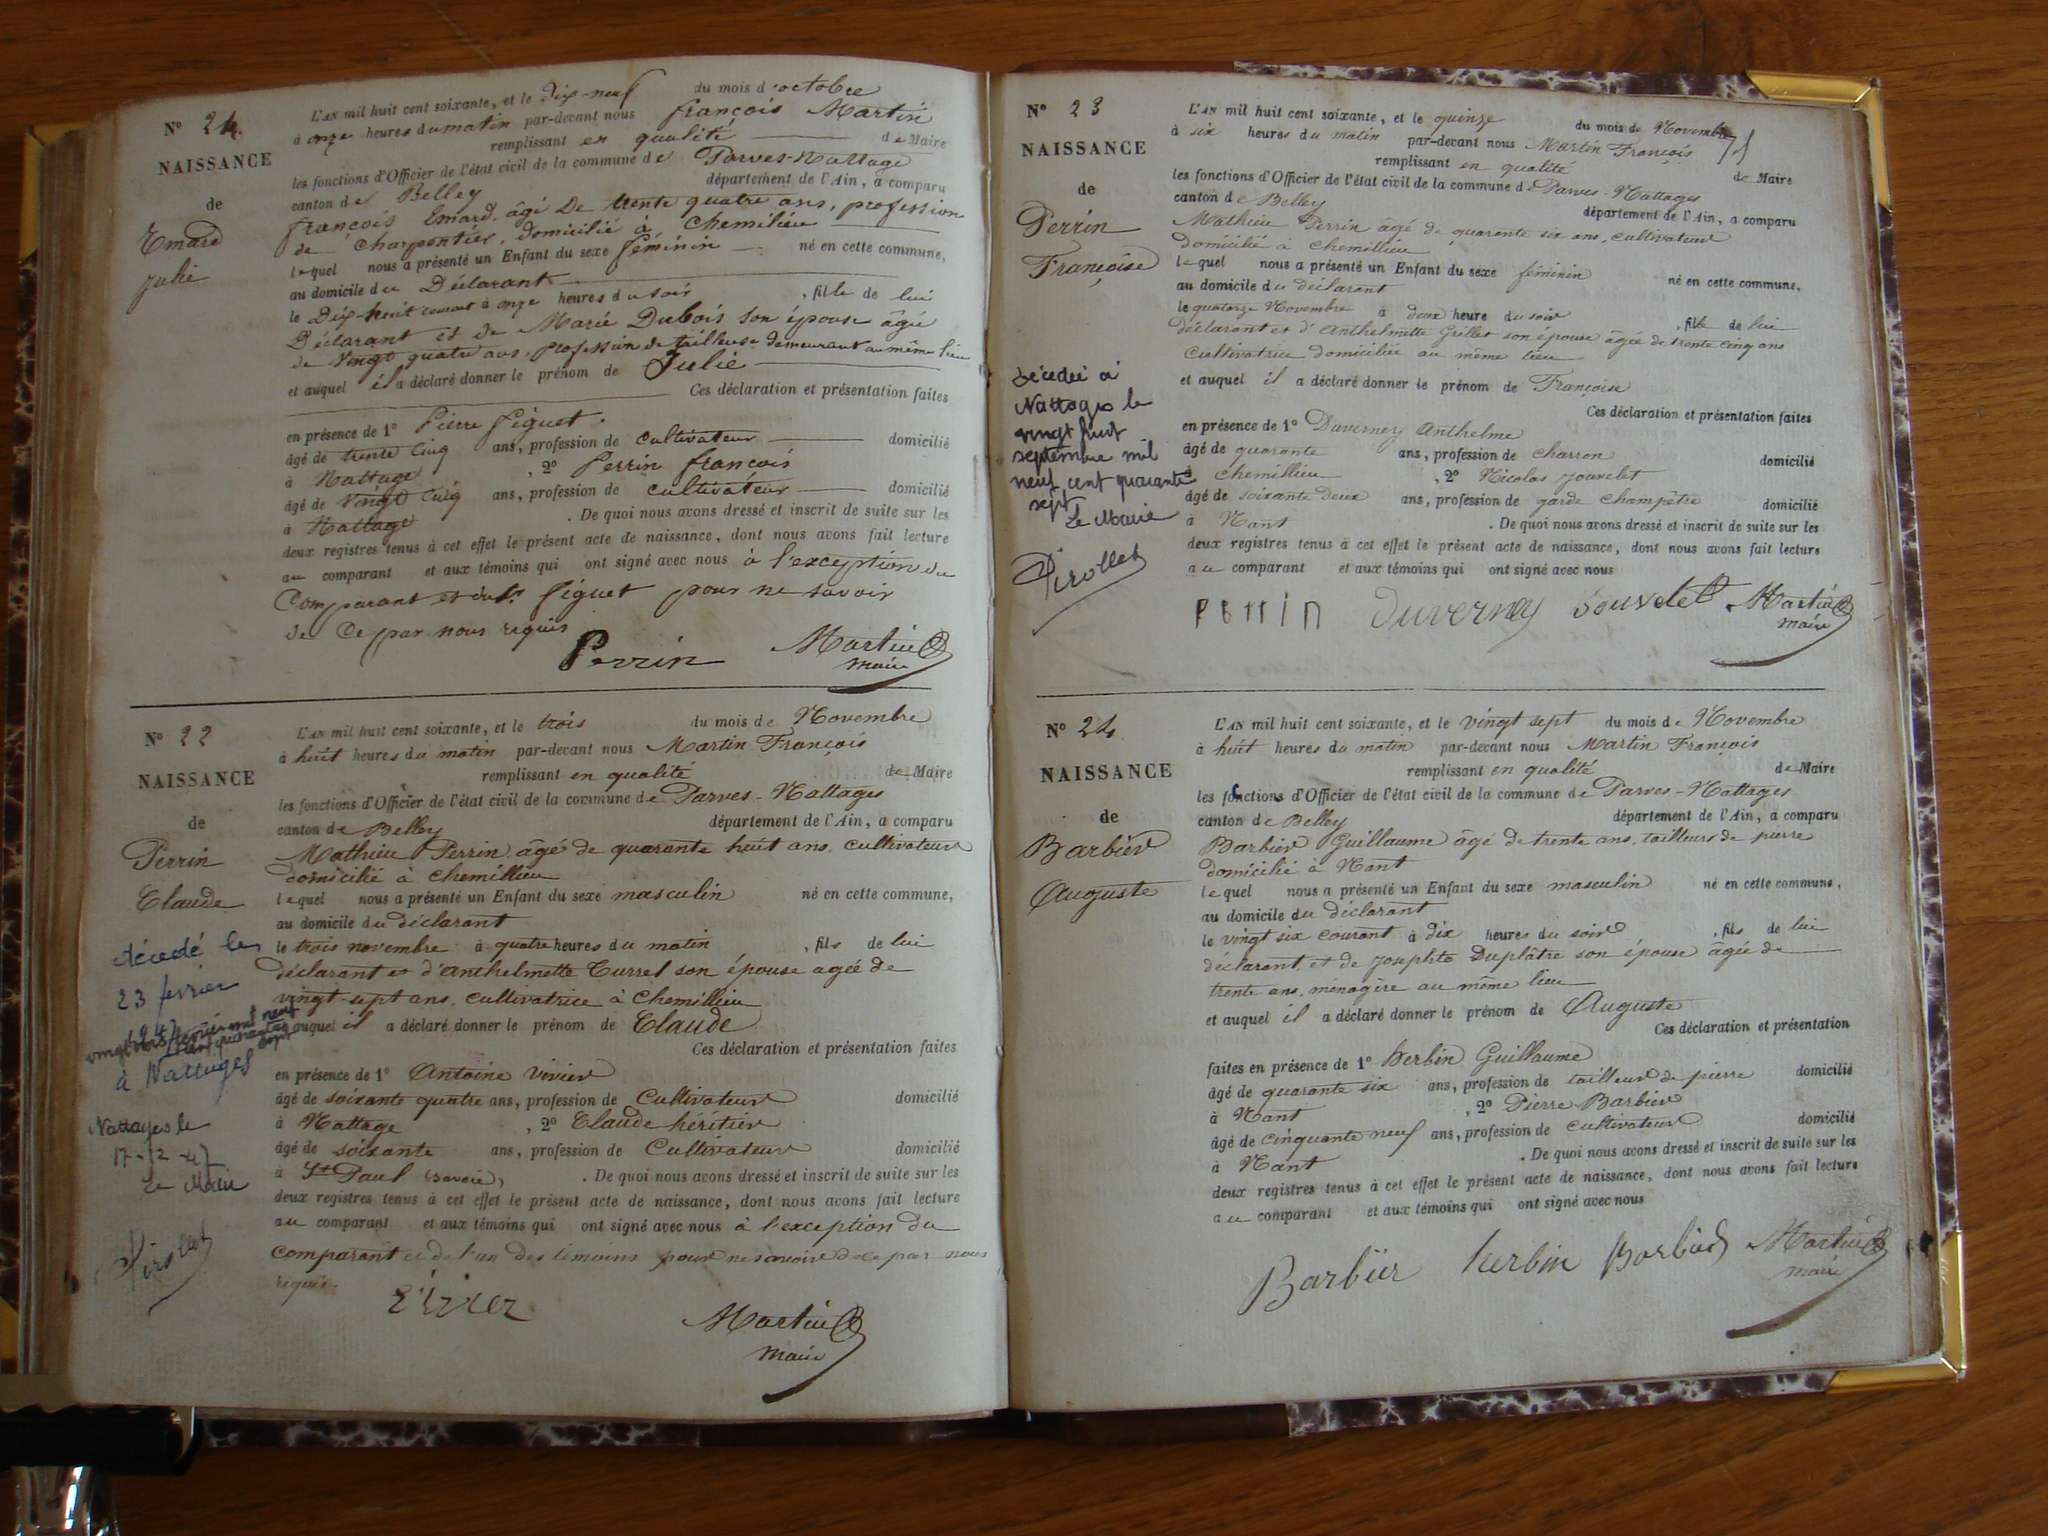 N° 21.
NAISSANCE
de
Emard
Julie
L'AN mil huit cent soixante, et le Dix-neuf du mois d'octobre
à onze heures du matin par-devant nous françois Martin
remplissant en qualité de Maire
les fonctions d'Officier de l'état civil de la commune de Parves-Nattage
canton de Belley département de l'Ain, a comparu
françois Emard, âgé De trente quatre ans, profession
de Charpentier, domicilié à Chemilieu
lequel nous a présenté un Enfant du sexe féminin né en cette commune,
au domicile du Déclarant
le Dix huit courant à onze heures du soir, fille de lui
Déclarant et de Marie Dubois son épouse âgée
de Vingt quatre ans, profession de tailleuse demeurant au même lieu
et auquel il a déclaré donner le prénom de Julie
Ces déclaration et présentation faites
en présence de 1° Pierre Piguet.
âgé de trente Cinq ans, profession de cultivateur domicilié
à Nattage, 2° Perrin françois
âgé de Vingt Cinq ans, profession de cultivateur domicilié
à Nattage. De quoi nous avons dressé et inscrit de suite sur les
deux registres tenus à cet effet le présent acte de naissance, dont nous avons fait lecture
au comparant et aux témoins qui ont signé avec nous à l'exception du
Comparant et du Piguet pour ne savoir
de ce par nous requis
Perrin Martin
maire
N° 22
NAISSANCE
de
Perrin
Claude
décédé le
23 fevrier
1947
vingt trois fevrier mil neuf
cent quarante sept
à Nattages
Nattages le
17-12-47
Le Maire
Pirollet
L'AN mil huit cent soixante, et le trois du mois de Novembre
à huit heures du matin par-devant nous Martin François
remplissant en qualité de Maire
les fonctions d'Officier de l'état civil de la commune de Parves-Nattages
canton de Belley département de l'Ain, a comparu
Mathieu Perrin âgé de quarante huit ans, cultivateur
domicilié à Chemillieu
lequel nous a présenté un Enfant du sexe masculin né en cette commune,
au domicile du déclarant
le trois novembre à quatre heures du matin, fils de lui
déclarant et d'Anthelmette Curret son épouse agée de
vingt-sept ans, cultivatrice à Chemillieu
et auquel il a déclaré donner le prénom de Claude
Ces déclaration et présentation faites
en présence de 1° Antoine Vivier
âgé de soixante quatre ans, profession de Cultivateur domicilié
à Nattage, 2° Claude héritier
âgé de soixante ans, profession de Cultivateur domicilié
à St Paul (Savoie). De quoi nous avons dressé et inscrit de suite sur les
deux registres tenus à cet effet le présent acte de naissance, dont nous avons fait lecture
au comparant et aux témoins qui ont signé avec nous à l'exception du
comparant et de l'un des témoins pour ne savoir de ce par nous
requis.
Martin
maire
N° 23
NAISSANCE
de
Perrin
Françoise
décédée à
Nattages le
vingt huit
septembre mil
neuf cent quarante
sept
Le Maire
Pirollet
L'AN mil huit cent soixante, et le quinze du mois de Novembre
à six heures du matin par-devant nous Martin François
remplissant en qualité de Maire
les fonctions d'Officier de l'état civil de la commune de Parves-Nattages
canton de Belley département de l'Ain, a comparu
Mathieu Perrin âgé de quarante six ans, cultivateur
domicilié à Chemillieu
lequel nous a présenté un Enfant du sexe féminin né en cette commune,
au domicile du déclarant
le quatorze Novembre à deux heure du soir, fille de lui
déclarant et d'Anthelmette Grillet son épouse âgée de trente cinq ans
Cultivatrice domiciliée au même lieu
et auquel il a déclaré donner le prénom de Françoise
Ces déclaration et présentation faites
en présence de 1° Duverney Anthelme
âgé de quarante ans, profession de charron domicilié
à Chemillieu, 2° Nicolas Jouvelet
âgé de soixante deux ans, profession de garde champêtre domicilié
à Nant. De quoi nous avons dressé et inscrit de suite sur les
deux registres tenus à cet effet le présent acte de naissance, dont nous avons fait lecture
au comparant et aux témoins qui ont signé avec nous
Perrin Duverney Jouvelet Martin
maire
N° 24
NAISSANCE
de
Barbier
Auguste
L'AN mil huit cent soixante, et le vingt sept du mois de Novembre
à huit heures du matin par-devant nous Martin François
remplissant en qualité de Maire
les fonctions d'Officier de l'état civil de la commune de Parves-Nattages
canton de Belley département de l'Ain, a comparu
Barbier Guillaume âgé de trente ans, tailleur de pierre
domicilié à Nant
lequel nous a présenté un Enfant du sexe masculin né en cette commune,
au domicile du déclarant
le vingt six courant à dix heures du soir, fils de lui
déclarant, et de Josephte Duplâtre son épouse âgée de
trente ans, ménagère au même lieu
et auquel il a déclaré donner le prénom de Auguste
Ces déclaration et présentation
faites en présence de 1° herbin Guillaume
âgé de quarante six ans, profession de tailleur de pierre domicilié
à Nant, 2° Pierre Barbier
âgé de cinquante neuf ans, profession de cultivateur domicilié
à Nant. De quoi nous avons dressé et inscrit de suite sur les
deux registres tenus à cet effet le présent acte de naissance, dont nous avons fait lecture
au comparant et aux témoins qui ont signé avec nous
Barbier herbin Barbier Martin
maire